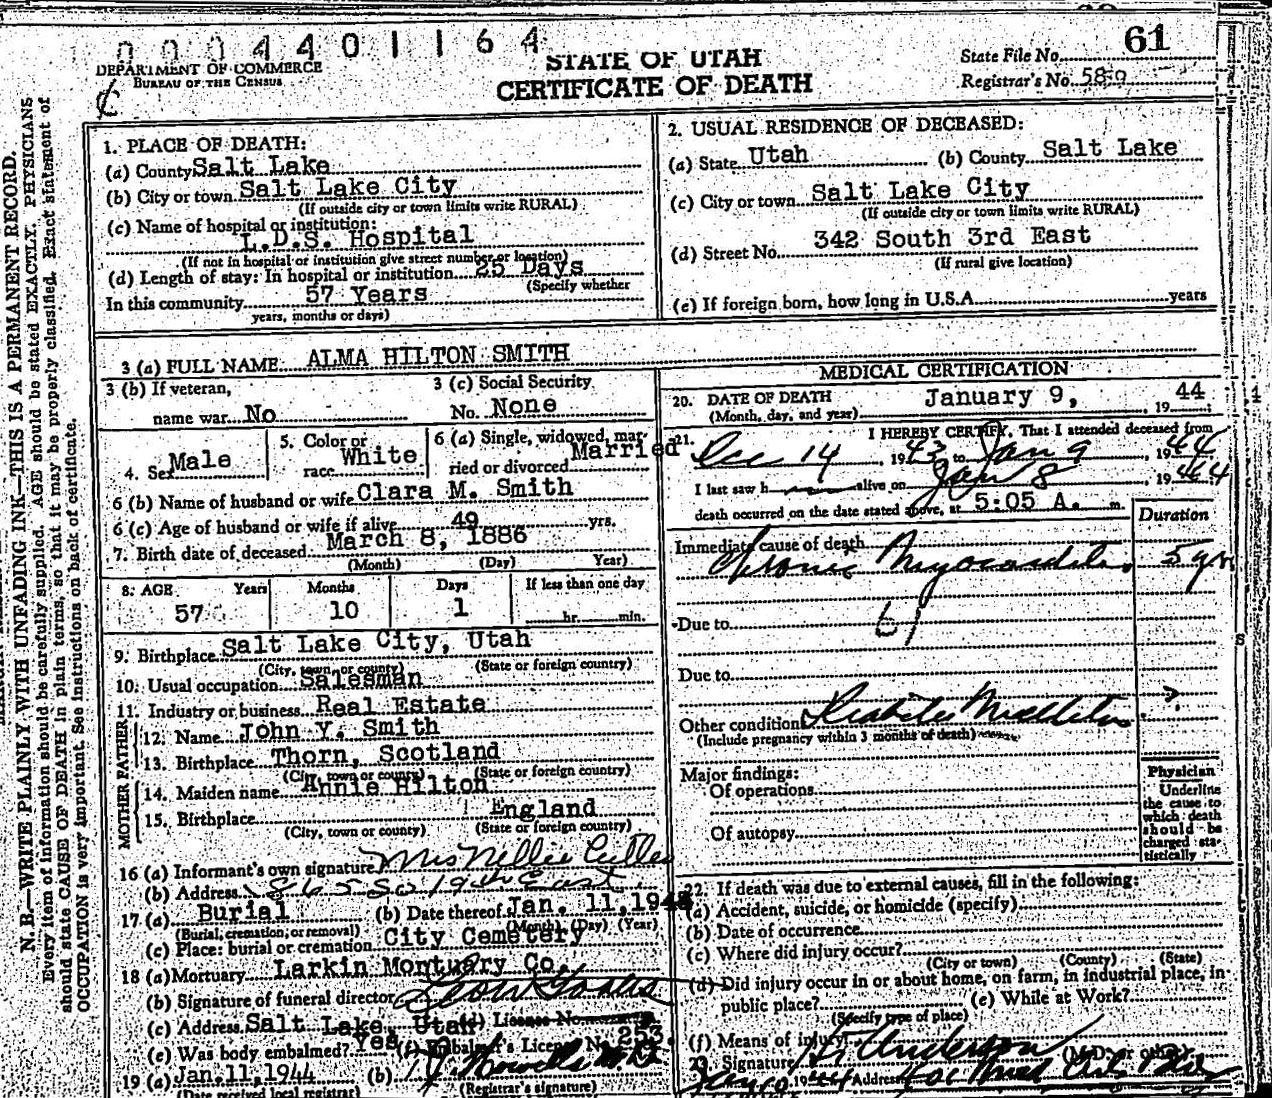 0004401164
61
STATE OF UTAH
CERTIFICATE OF DEATH
DEPARTMENT OF COMMERCE
BUREAU OF THE CENSUS
State File No.
Registrar's No. 58
N. B.—WRITE PLAINLY WITH UNFADING INK—THIS IS A PERMANENT RECORD.
Every item of information should be carefully supplied. AGE should be stated EXACTLY. PHYSICIANS
should state CAUSE OF DEATH in plain terms, so that it may be properly classified. Exact statement of
OCCUPATION is very important. See instructions on back of certificate.
1. PLACE OF DEATH:
(a) County Salt Lake
(b) City or town Salt Lake City
(If outside city or town limits write RURAL)
(c) Name of hospital or institution:
L.D.S. Hospital
(If not in hospital or institution give street number or location)
(d) Length of stay: In hospital or institution 25 Days
(Specify whether
In this community 57 Years
years, months or days)
2. USUAL RESIDENCE OF DECEASED:
(a) State Utah (b) County Salt Lake
(c) City or town Salt Lake City
(If outside city or town limits write RURAL)
(d) Street No. 342 South 3rd East
(If rural give location)
(e) If foreign born, how long in U.S.A. years
3 (a) FULL NAME ALMA HILTON SMITH
3 (b) If veteran, 3 (c) Social Security
name war No No. None
4. Sex Male 5. Color or race White 6 (a) Single, widowed, married or divorced Married
6 (b) Name of husband or wife Clara M. Smith
6 (c) Age of husband or wife if alive 49 yrs.
7. Birth date of deceased March 8, 1886
(Month) (Day) Year)
8. AGE Years Months Days If less than one day
57 10 1 hr. min.
9. Birthplace Salt Lake City, Utah
(City, town or county) (State or foreign country)
10. Usual occupation Salesman
11. Industry or business Real Estate
FATHER
12. Name John Y. Smith
13. Birthplace Thorn, Scotland
(City, town or county) (State or foreign country)
MOTHER
14. Maiden name Annie Hilton
15. Birthplace England
(City, town or county) (State or foreign country)
16 (a) Informant's own signature Mrs Nellie Cutler
(b) Address 1865 So 19th East
17 (a) Burial (b) Date thereof Jan. 11, 194
(Burial, cremation, or removal) (Month) (Day) (Year)
(c) Place: burial or cremation City Cemetery
18 (a) Mortuary Larkin Mortuary Co.
(b) Signature of funeral director
(c) Address Salt Lake, Utah (d) License No.
(e) Was body embalmed? Yes (f) Embalmer's License No. 253
19 (a) Jan. 11, 1944 (b) M.D.
(Date received local registrar) (Registrar's signature)
MEDICAL CERTIFICATION
20. DATE OF DEATH January 9, 1944
(Month, day, and year)
21. I HEREBY CERTIFY, That I attended deceased from
Dec 14, 1943 to Jan 9, 1944
I last saw h alive on Jan 8 1944
death occurred on the date stated above, at 5:05 A. m.
Duration
Immediate cause of death
Chronic Myocarditis 5 yrs
Due to
Due to
Other conditions Diabetes Mellitus ?
(Include pregnancy within 3 months of death)
Major findings:
Of operations
Of autopsy
Physician
Underline
the cause to
which death
should be
charged sta-
tistically
22. If death was due to external causes, fill in the following:
(a) Accident, suicide, or homicide (specify)
(b) Date of occurrence
(c) Where did injury occur?
(City or town) (County) (State)
(d) Did injury occur in or about home, on farm, in industrial place, in
public place? (e) While at Work?
(Specify type of place)
(f) Means of injury
23. Signature Anderson (M.D. or other)
1944 Address